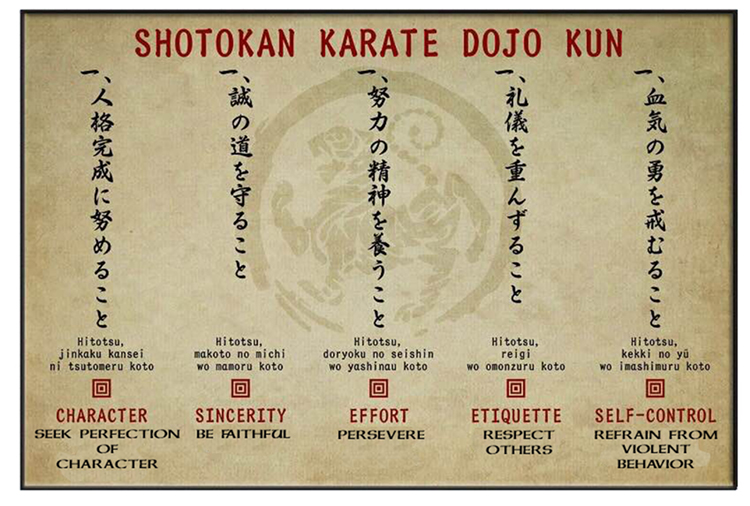 SHOTOKAN KARATE DOJO KUN
一、人格完成に努めること
一、誠の道を守ること
一、努力の精神を養うこと
一、礼儀を重んずること
一、血気の勇を戒むること
Hitotsu,
jinkaku kansei
ni tsutomeru koto
Hitotsu,
makoto no michi
wo mamoru koto
Hitotsu,
doryoku no seishin
wo yashinau koto
Hitotsu,
reigi
wo omonzuru koto
Hitotsu,
kekki no yū
wo imashimuru koto
CHARACTER
SEEK PERFECTION
OF
CHARACTER
SINCERITY
BE FAITHFUL
EFFORT
PERSEVERE
ETIQUETTE
RESPECT
OTHERS
SELF-CONTROL
REFRAIN FROM
VIOLENT
BEHAVIOR